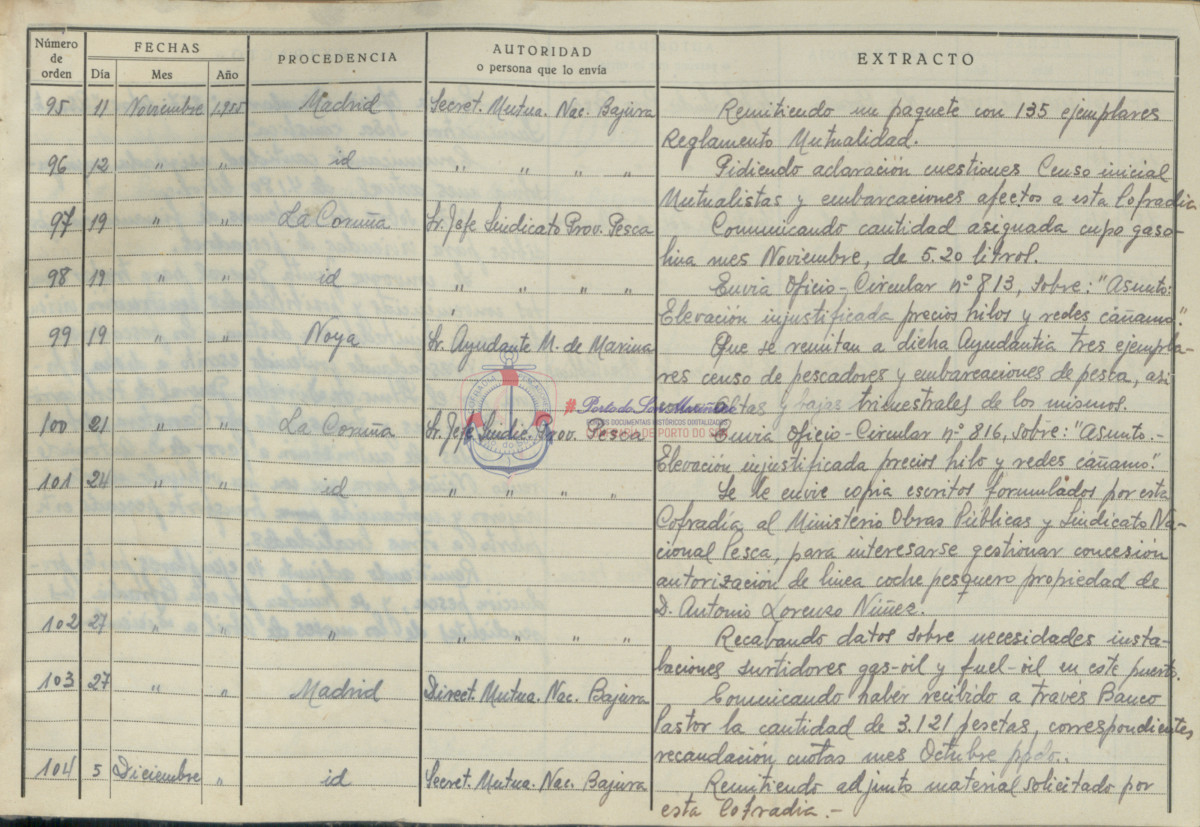 Número de orden FECHAS PROCEDENCIA AUTORIDAD o persona que lo envía EXTRACTO
Dia Mes Año
95 11 Noviembre 1955 Madrid Secret. Mutua. Nac. Bajura Remitiendo un paquete con 135 ejemplares
Reglamento Mutualidad.
96 12 " " id " " " " Pidiendo aclaración cuestiones Censo inicial
Mutualistas y embarcaciones afectos a esta Cofradia
97 19 " " La Coruña Sr. Jefe Sindicato Prov. Pesca Comunicando cantidad asignada cupo gaso-
lina mes Noviembre, de 5.20 litros.
98 19 " " id " " " " Envia Oficio-Circular nº 813, sobre: "Asunto:
" Elevación injustificada precios hilos y redes cáñamo."
99 19 " " Noya Sr. Ayudante M. de Marina Que se remitan a dicha Ayudantia tres ejempla-
res censo de pescadores y embarcaciones de pesca, asi
altas y bajas trimestrales de los mismos.
#Porto do Son Mariñeiro
FONDOS DOCUMENTAIS HISTÓRICOS DIXITALIZADOS
DE PORTO DO SON
100 21 " " La Coruña Sr. Jefe Sindic. Prov. Pesca Envia Oficio-Circular nº 816, sobre: "Asunto.-
Elevación injustificada precios hilo y redes cáñamo."
101 24 " " id " " " " Se le envie copia escritos formulados por esta
Cofradía al Ministerio Obras Públicas y Sindicato Na-
cional Pesca, para interesarse gestionar concesión
autorización de linea coche pesquero propiedad de
D. Antonio Lorenzo Núñez.
102 27 " " " " " " " Recabando datos sobre necesidades insta-
laciones surtidores gas-oil y fuel-oil en este puerto.
103 27 " " Madrid Direct. Mutua. Nac. Bajura Comunicando haber recibido a través Banco
Pastor la cantidad de 3.121 pesetas, correspondientes
recaudación cuotas mes Octubre ppdo..
104 5 Diciembre " id Secret. Mutua. Nac. Bajura Remitiendo adjunto material solicitado por
esta Cofradia.-